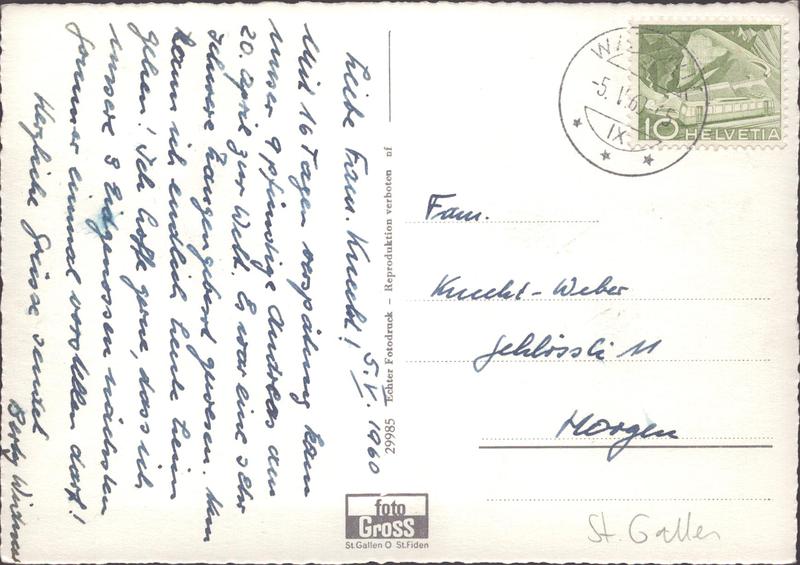 5.V.1960
Liebe Fam. Knecht!
Mit 16 Tagen verspätung kam
unser 9 pfündige Andreas am
20. April zur Welt. Es war eine sehr
schwere Zangengeburt gewesen. Nun
kann ich endlich heute heim
gehen! Ich hoffe gerne, dass ich
unsere 3 Eidgenossen nächsten
Sommer einmal vorstellen darf!
Herzliche Grüsse sendet
Berty
29985 Echter Fotodruck – Reproduktion verboten nf
foto
Gross
St.Gallen O St.Fiden
-5.V.60
IX
10 HELVETIA
Fam.
Knecht-Weber
Schlössli 11
Horgen
St. Gallen